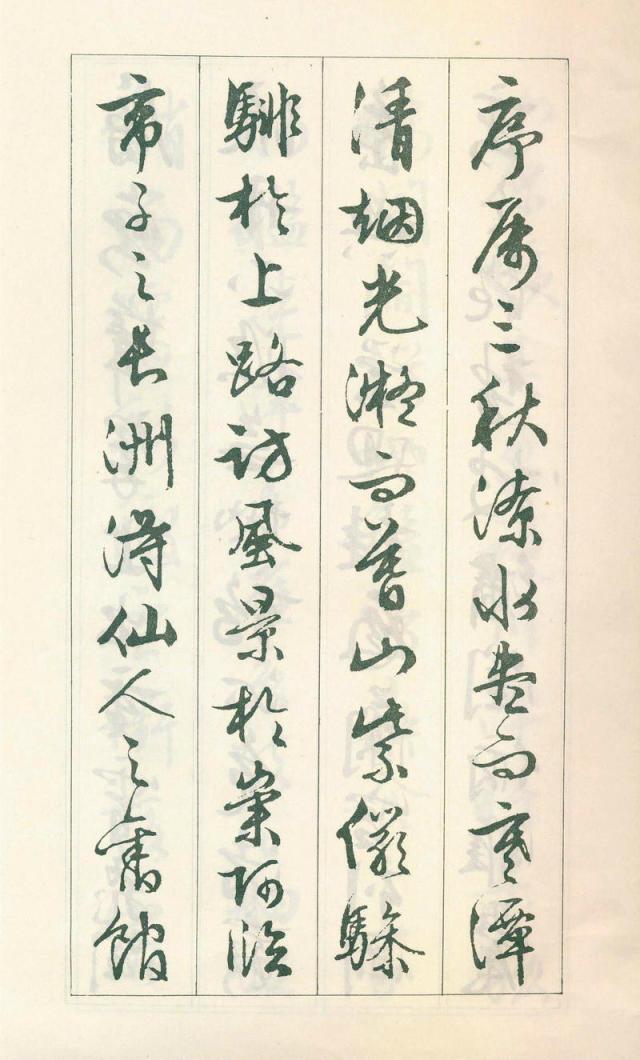 序屬三秋潦水盡而寒潭
清烟光凝而暮山紫儼驂
騑於上路訪風景於崇阿臨
帝子之長洲得仙人之舊館